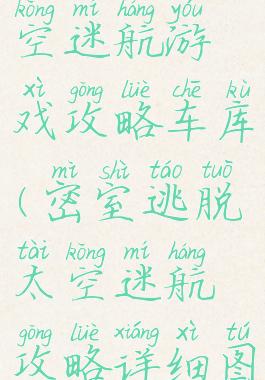 kōng mí háng yóu
空迷航游
xì gōng lüè chē kù
戏攻略车库
mì shì táo tuō
(密室逃脱
tài kōng mí háng
太空迷航
gōng lüè xiáng xì tú
攻略详细图